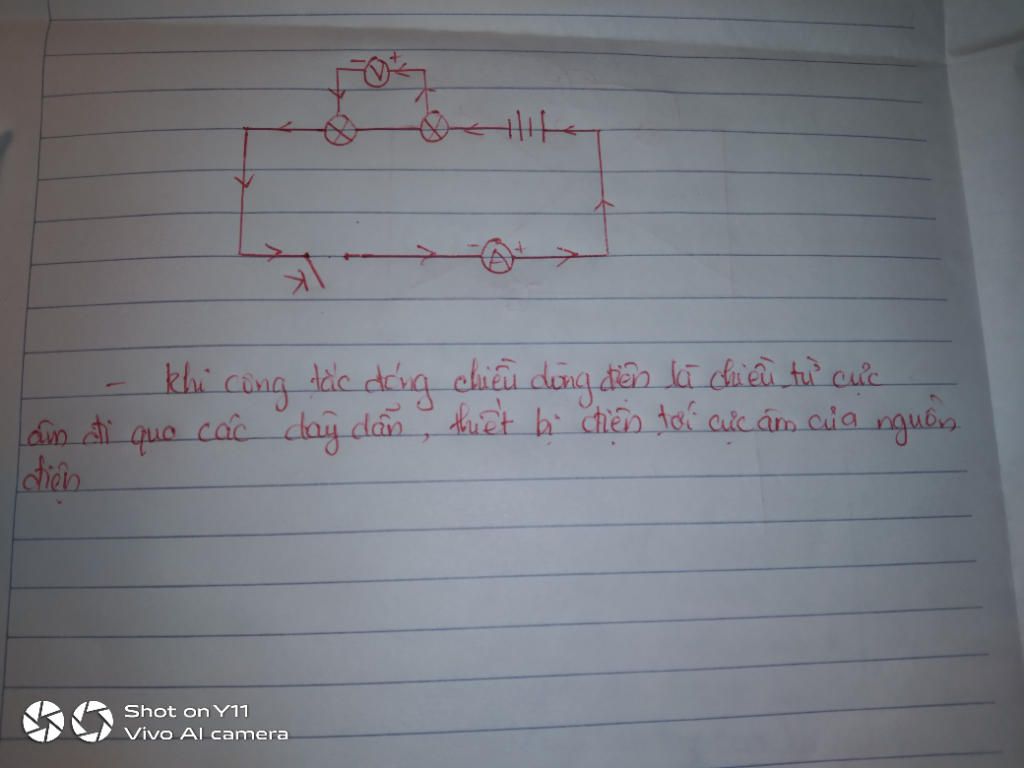 - V +
K
- A +
- khi công tắc đóng chiều dòng điện là chiều từ cực
âm đi qua các dây dẫn, thiết bị điện tới cực âm của nguồn
điện
Shot on Y11
Vivo AI camera